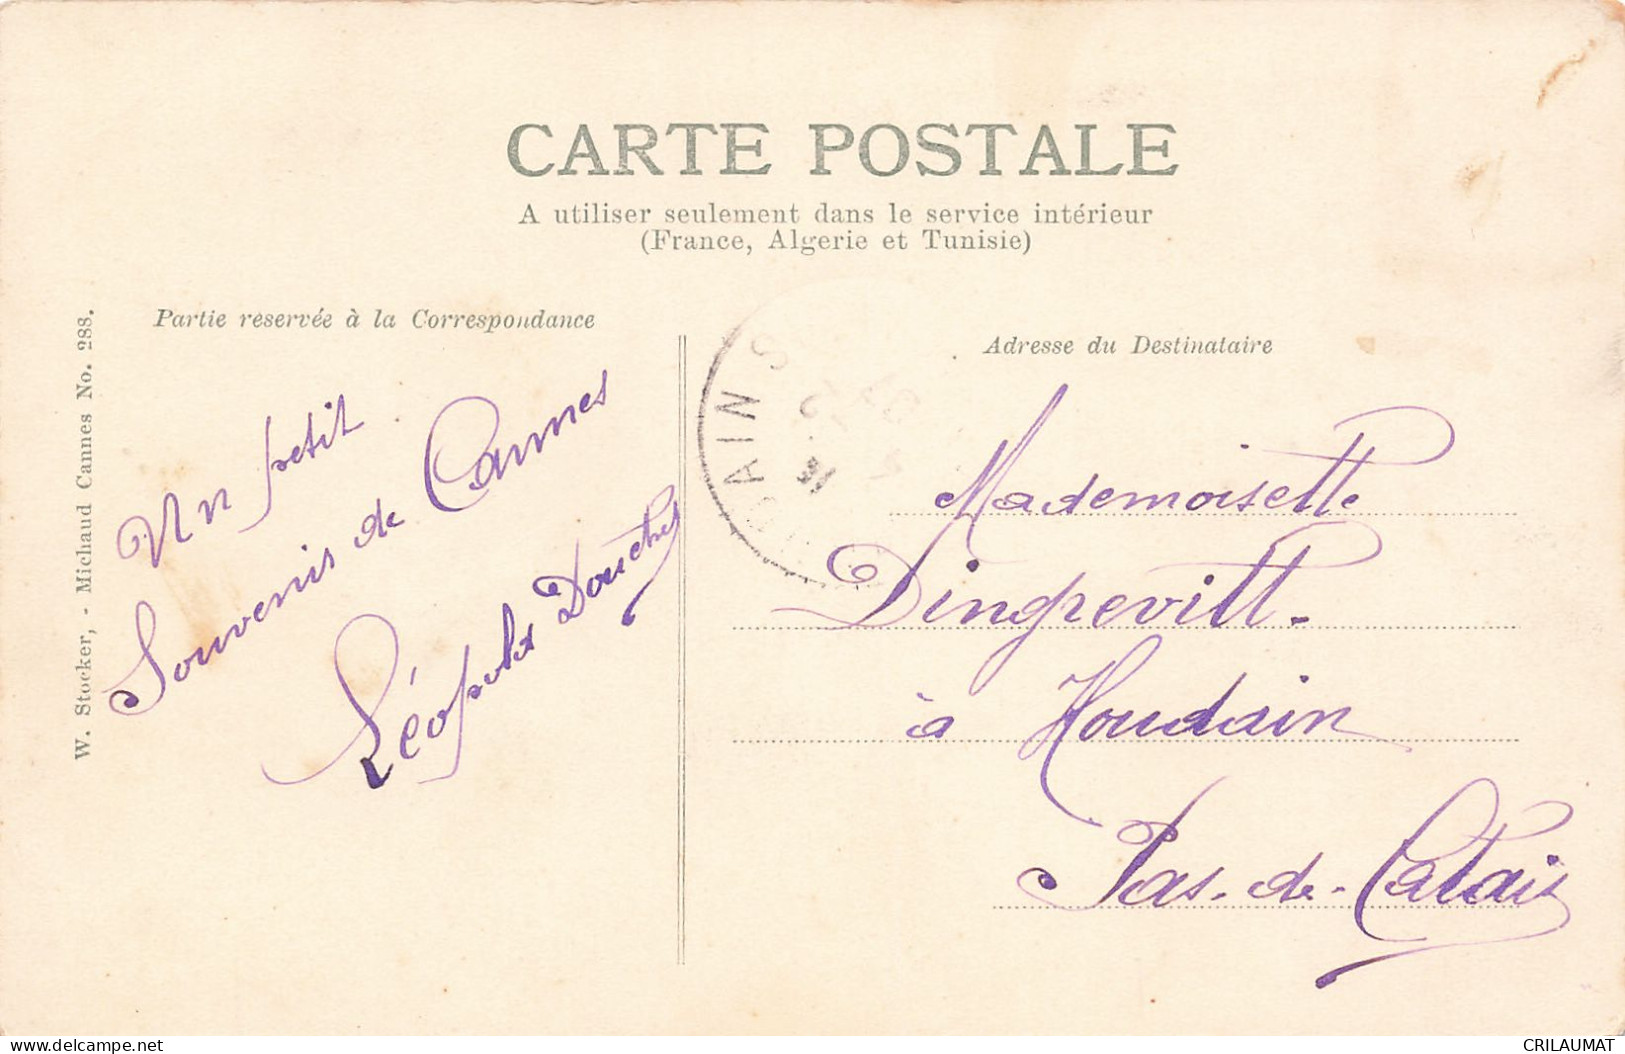 CARTE POSTALE
A utiliser seulement dans le service intérieur
(France, Algerie et Tunisie)
Partie reservée à la Correspondance
Adresse du Destinataire
W. Stocker, - Michaud Cannes No. 288.
Un petit
Souvenir de Cannes
Léopold
Mademoiselle
Dingrevill.
à Houdain
Pas-de-Calais
www.delcampe.net
CRILAUMAT